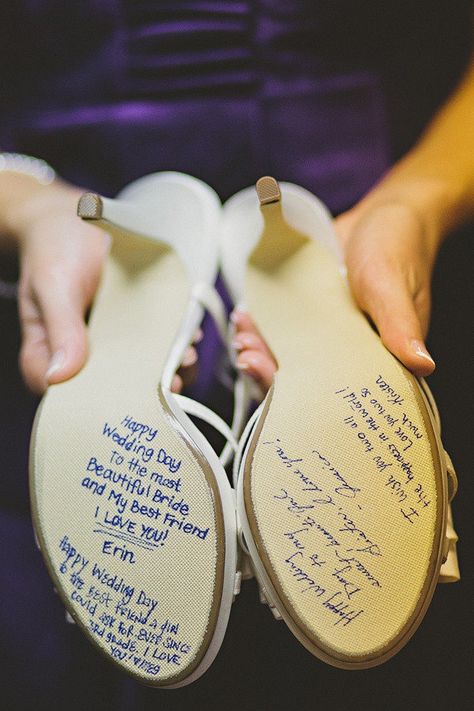 Happy
Wedding Day
To the most
Beautiful Bride
and My Best Friend
I LOVE YOU!
Erin
Happy Wedding Day
to the Best Friend a girl
could ask for ever since
3rd grade. I LOVE
YOU!
I wish you two all
the happiness in the world!
Love you two so
much, Kristen
Happy Wedding
Day to my
sweet, sweet girl
Sister, I love you!